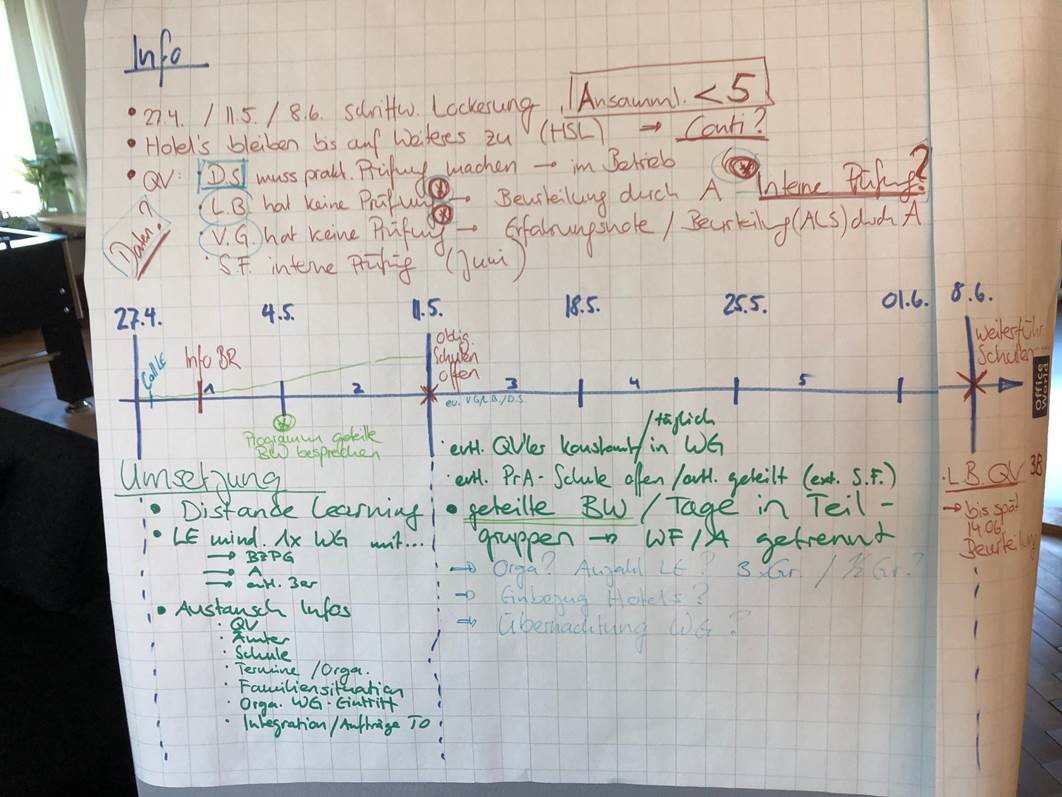 Info
• 27.4. / 11.5. / 8.6. schrittw. Lockerung, Ansamml. < 5
• Hotel's bleiben bis auf Weiteres zu (HSL) → Conti?
• QV: D.S muss prakt. Prüfung machen → im Betrieb
L.B hat keine Prüfung → Beurteilung durch A Interne Prüfung?
V.G hat keine Prüfung → Erfahrungsnote / Beurteilung (ALS) durch A
S.F. interne Prüfung (Juni)
Daten?
27.4. 4.5. 11.5. 18.5. 25.5. 01.6. 8.6.
Call LE
Info BR
Oblig. Schulen offen
weiterführ. Schulen
1 2 3 4 5
ev. V.G/L.B./D.S.
Programm geteilte
BW besprechen
Office World
Umsetzung
• Distande Learning
• LE mind. 1x WG mit...
→ BZPG
→ A
→ evtl. 3er
• Austausch Infos
· QV
· Ämter
· Schule
· Termine / Orga.
· Familiensituation
· Orga. WG-Eintritt
· Integration / Aufträge TO
· evtl. QV'ler konstant / täglich in WG
· evtl. PrA-Schule offen / evtl. geteilt (ext. S.F.)
• geteilte BW / Tage in Teil-
gruppen → WF/A getrennt
→ Orga? Anzahl LE? 3 x Gr. / ½ Gr.?
→ Einbezug Hotels?
→ Übernachtung WG?
· L.B. QV 3B
→ bis spät.
14.06.
Beurteilung